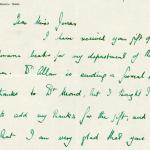 Dear Miss Jones
I have received your gift of
books for my department of the
Dr Allan is sending a formal
thanks to Dr Mond, but I thought I
to add my thanks for the gift, and
that I am very glad that you